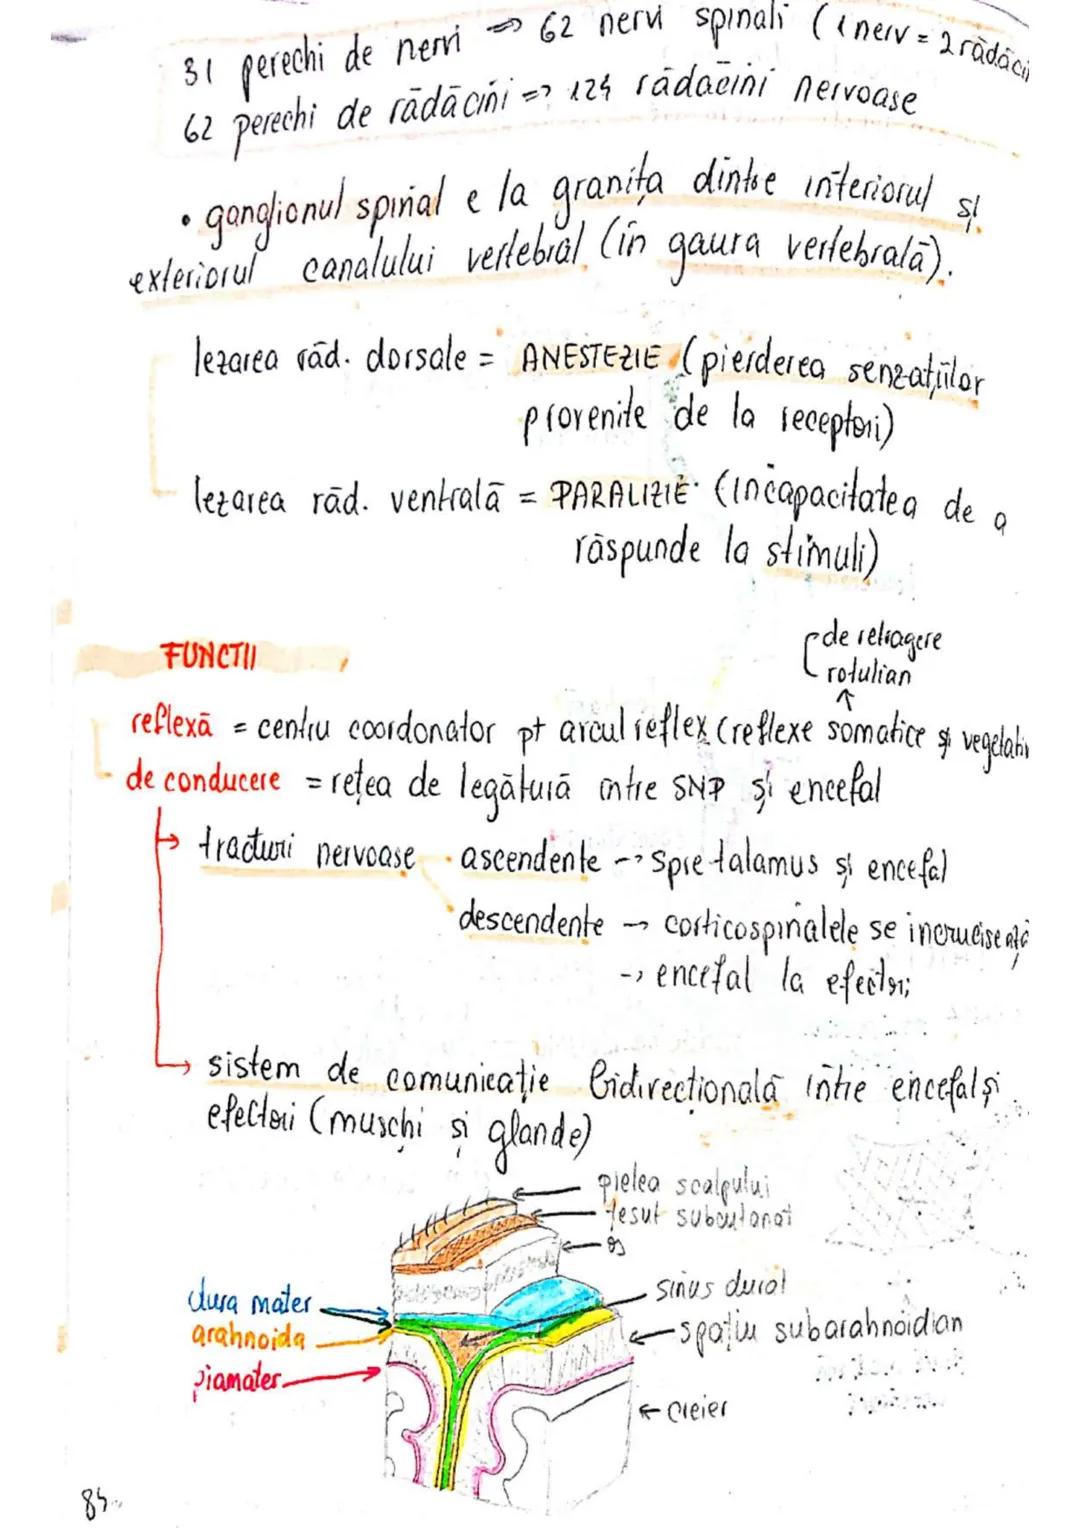 31 perechi de nervi => 62 nervi spinali (1 nerv = 2 rădăcin
62 perechi de rădăcini => 124 rădăcini nervoase
• ganglionul spinal e la granița dintre interiorul și
exteriorul canalului vertebral (în gaura vertebrală).
lezarea răd. dorsale = ANESTEZIE (pierderea senzațiilor
provenite de la receptori)
lezarea răd. ventrală = PARALIZIE (incapacitatea de a
răspunde la stimuli)
FUNCTII
de retragere
rotulian
reflexă = centru coordonator pt arcul reflex (reflexe somatice și vegetativ
de conducere = rețea de legătură între SNP și encefal
tracturi nervoase • ascendente -> spre talamus și encefal
• descendente -> corticospinalele se încrucișează
-> encefal la efectori
sistem de comunicație bidirecțională între encefal și
efectori (muschi și glande)
pielea scalpului
țesut subcutanat
os
dura mater
sinus dural
arahnoida
spațiu subarahnoidian
piamater
creier